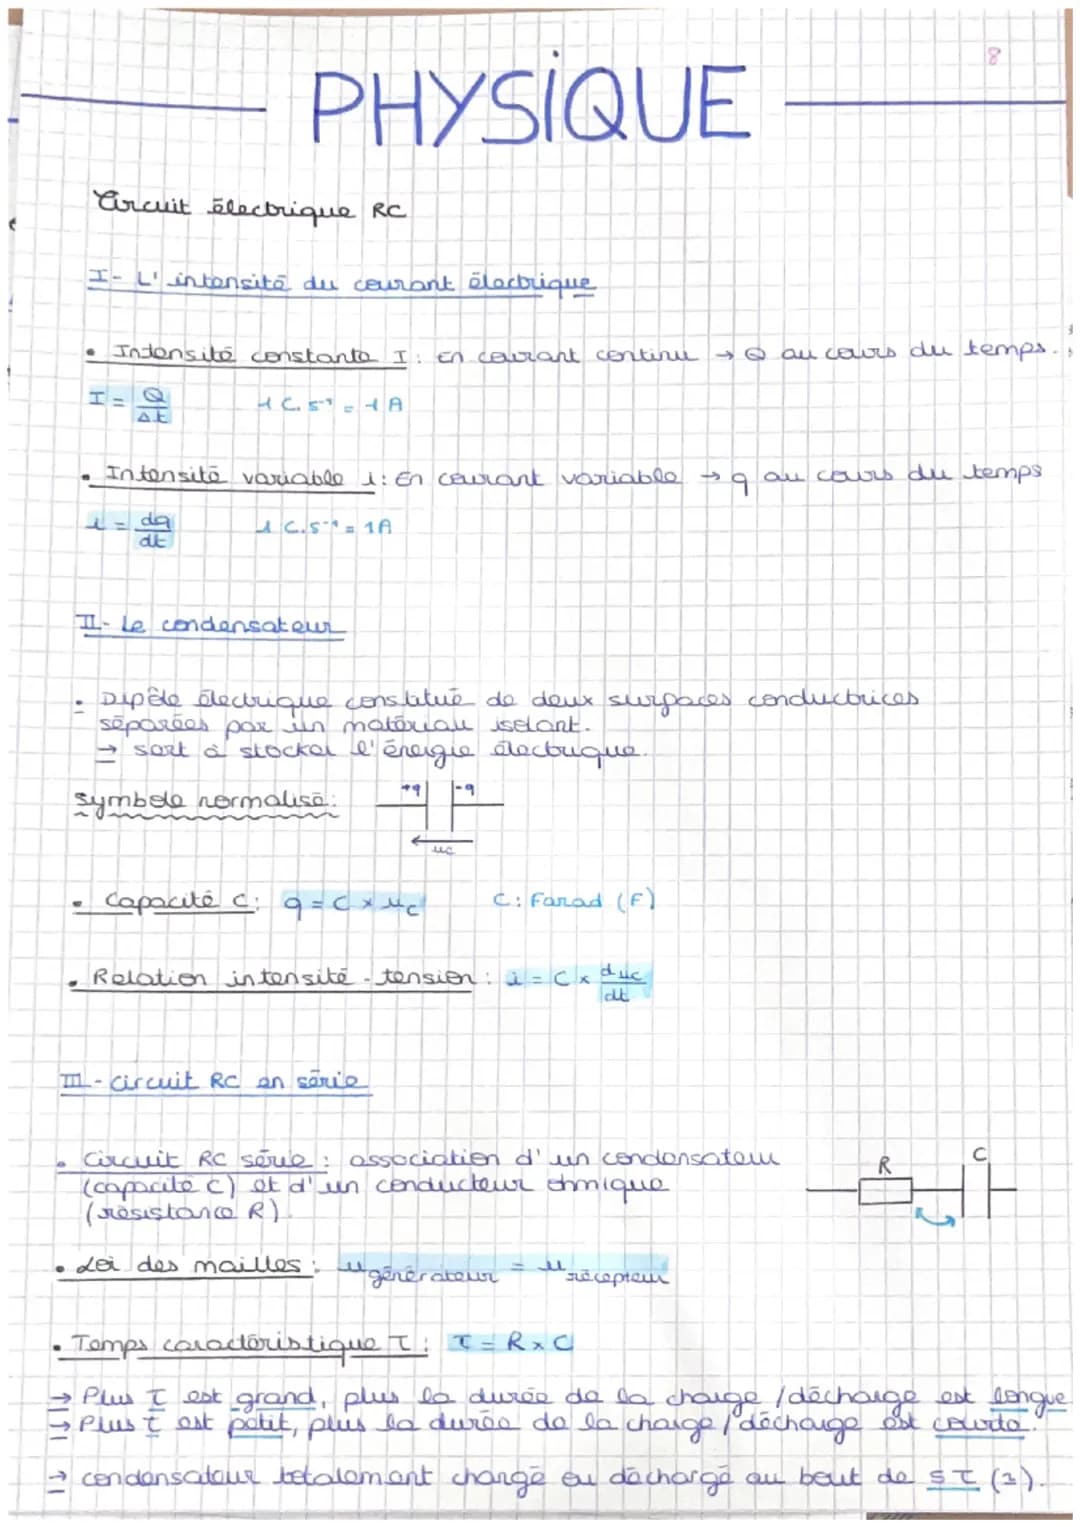 8
PHYSIQUE
Circuit électrique RC
I- L'intensité du courant électrique
• Intensité constante I : En courant continu → Q au cours du temps.
I = Q/Δt    1 C.s⁻¹ = 1 A
• Intensité variable i : En courant variable → q au cours du temps
i = dq/dt    1 C.s⁻¹ = 1A
II- Le condensateur
• Dipôle électrique constitué de deux surfaces conductrices
séparées par un matériau isolant.
→ sert à stocker l'énergie électrique.
symbole normalisé :
+q -q
uc
• Capacité C : q = C × uc    C : Farad (F)
• Relation intensité - tension : i = C × duc/dt
III - circuit RC en série
• Circuit RC série : association d'un condensateur
(capacité C) et d'un conducteur ohmique
(résistance R).
R C
• Loi des mailles : u générateur = u récepteur
• Temps caractéristique τ : τ = R × C
→ Plus τ est grand, plus la durée de la charge / décharge est longue
→ Plus τ est petit, plus la durée de la charge / décharge est courte.
→ condensateur totalement chargé ou déchargé au bout de 5 τ